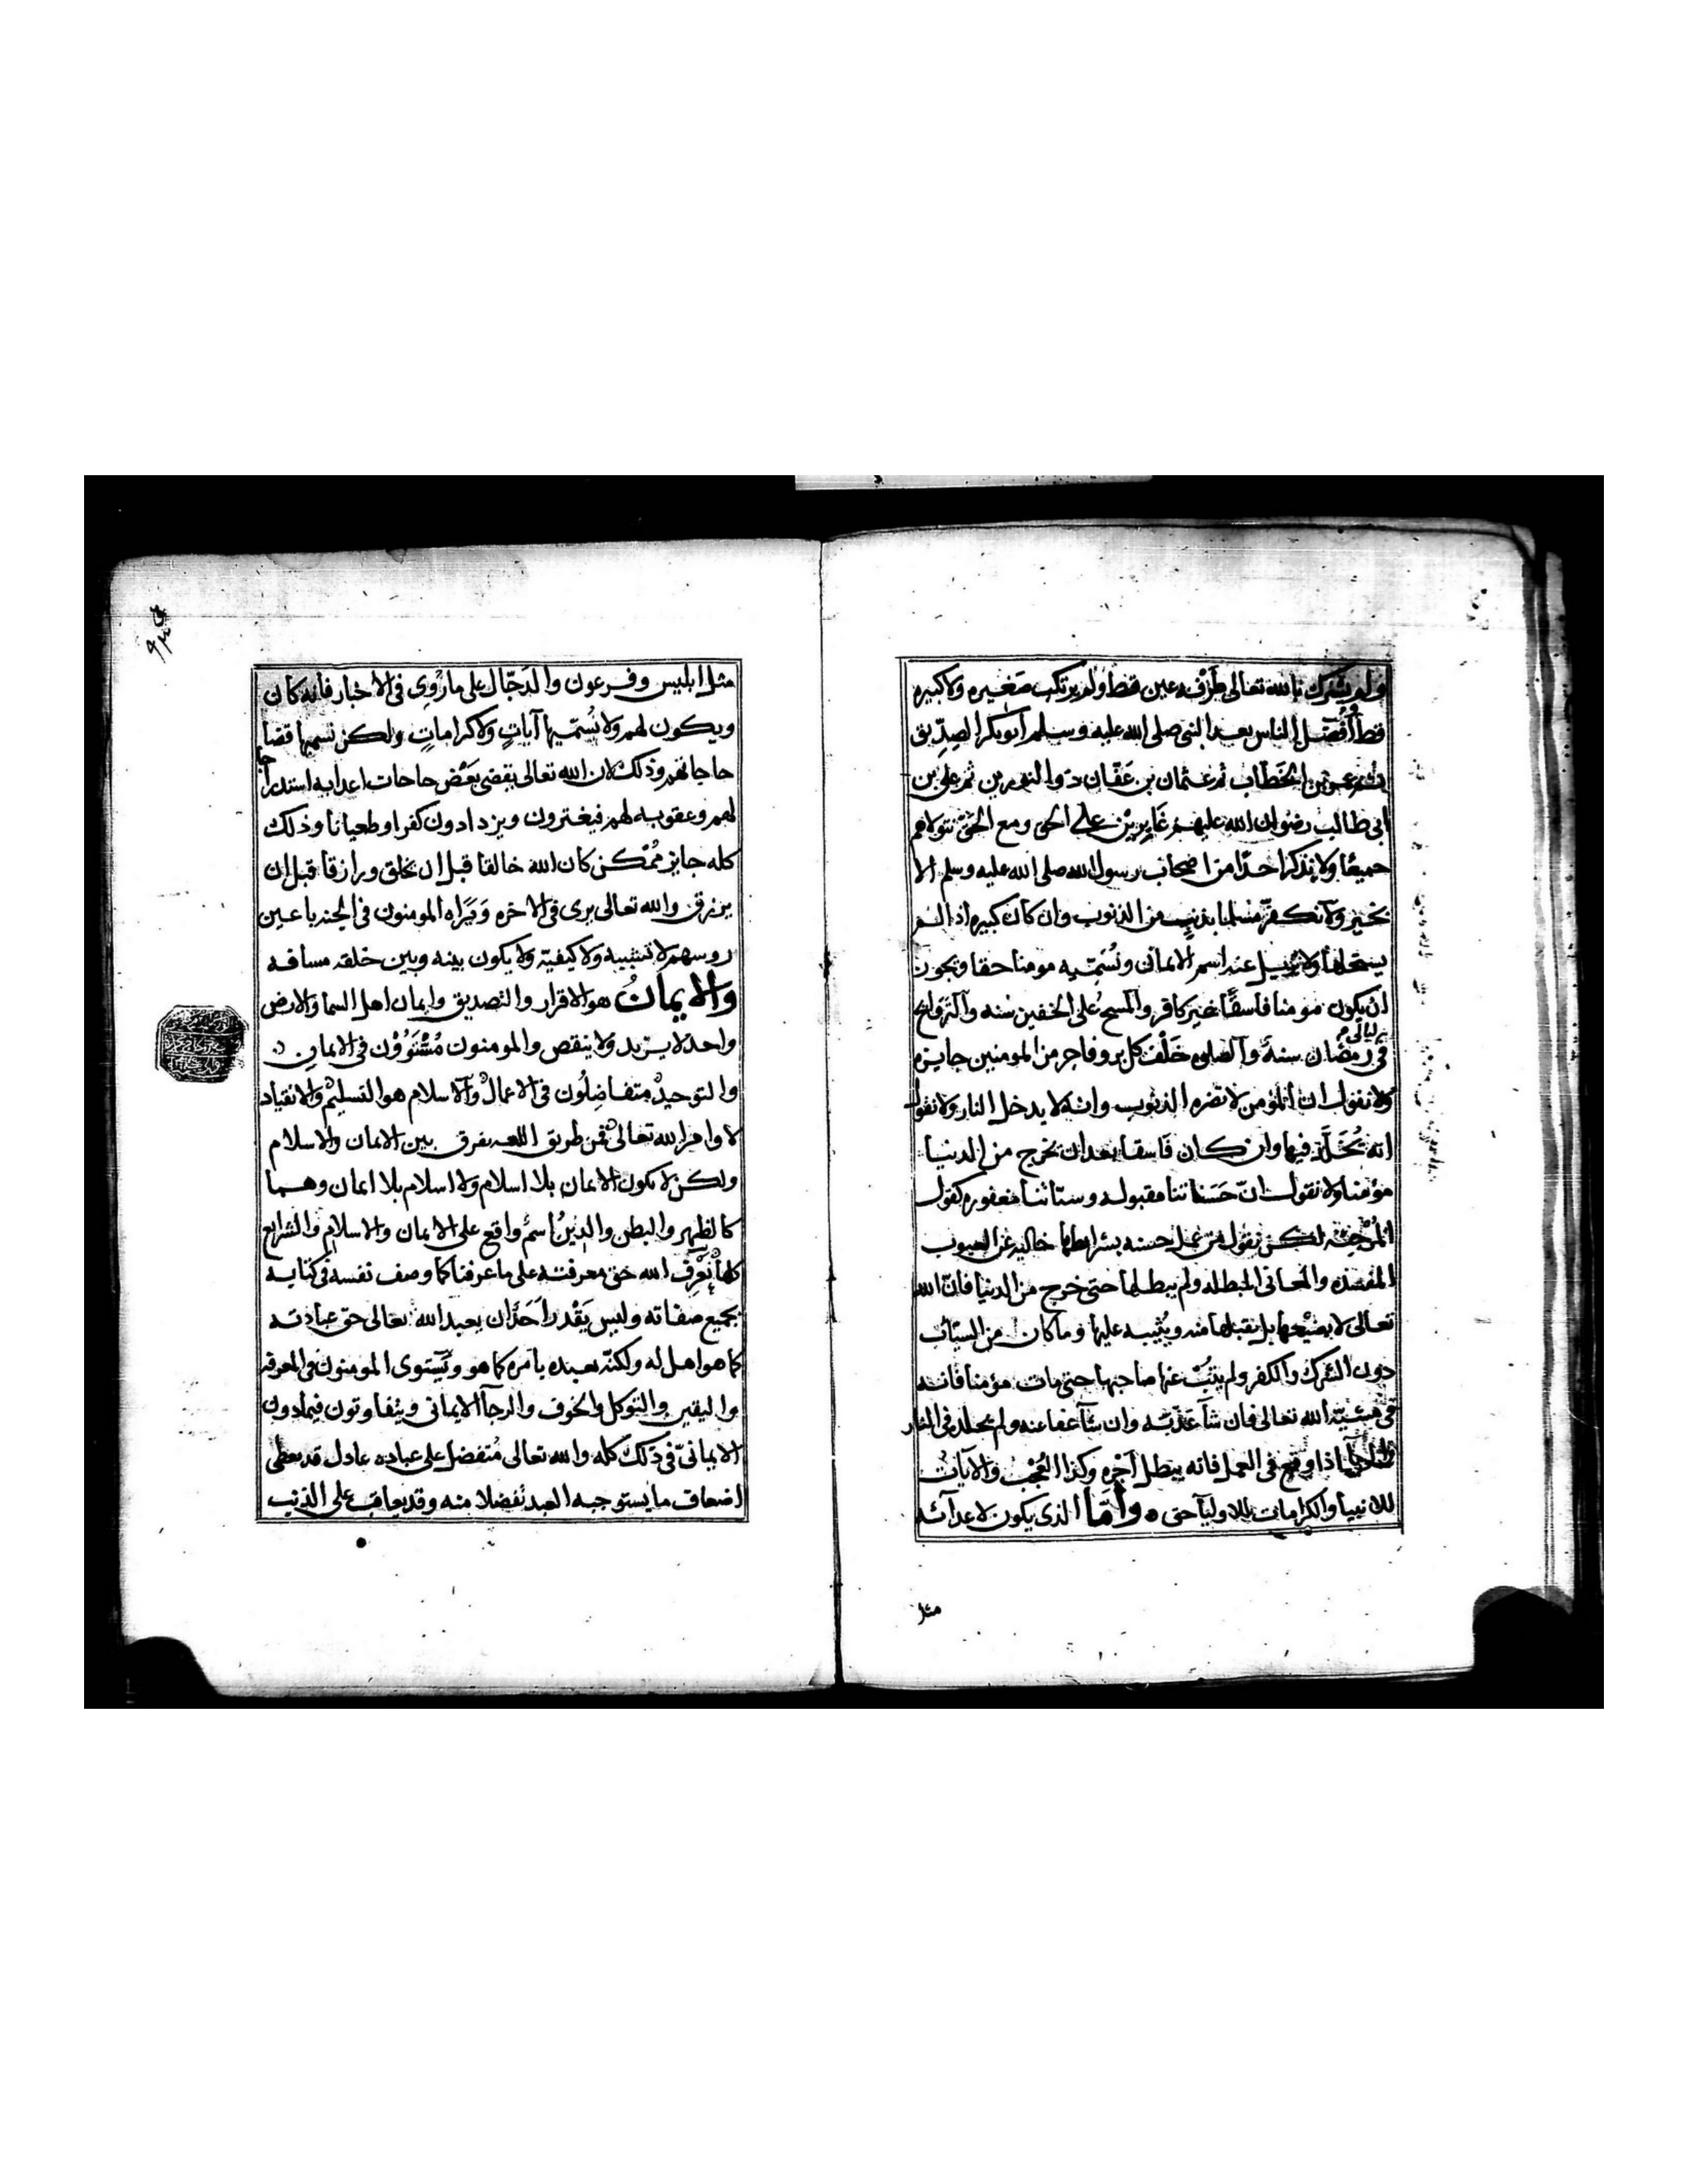 ولم يشرك بالله تعالى طرفه عين قط ولم يرتكب صغيره ولا كبيره
قط وأفضل الناس بعد النبي صلى الله عليه وسلم ابو بكر الصديق
ثم عمر بن الخطاب ثم عثمان بن عفان ذو النورين ثم علي بن
ابي طالب رضوان الله عليهم غابرين على الحق ومع الحق نتولاهم
جميعا ولا نذكر احدا من اصحاب رسول الله صلى الله عليه وسلم الا
بخير ولا نكفر مسلما بذنب من الذنوب وان كان كبيره اذا لم
يستحلها ولا نزيل عنه اسم الايمان ونسميه مومنا حقا ويجوز
ان يكون مومنا فاسقا غير كافر والمسح على الخفين سنه والتراويح
في ليالي رمضان سنة والصلوه خلف كل بر وفاجر من المومنين جايزه
ولا نقول ان المؤمن لا تضره الذنوب وانه لا يدخل النار ولا نقول
انه يخلد فيها وان كان فاسقا بعد ان يخرج من الدنيا
مؤمنا ولا نقول ان حسناتنا مقبوله وسياتنا مغفوره كقول
المرجئه لكن نقول من عمل حسنه بشرايطها خاليه عن العيوب
المفسده والمعاني المبطله ولم يبطلها حتى خرج من الدنيا فان الله
تعالى لا يضيعها بل يقبلها منه ويثيبه عليها وما كان من السيئات
دون الشرك والكفر ولم يتب عنها صاحبها حتى مات مؤمنا فانه
في مشيئة الله تعالى فان شآ عذبه وان شآ عفا عنه ولم يخلد في النار
اذا وقع في العمل فانه يبطل اجره وكذا العجب والآيات
للانبيا والكرامات للاوليآ حق ٥ واما الذي يكون لاعدآئه
مثل
مثل ابليس وفرعون والدجال على ما روي في الاخبار فانه كان
ويكون لهم ولا نسميها آيات ولا كرامات ولكن نسميها قضا
حاجاتهم وذلك لان الله تعالى يقضى بعض حاجات اعدايه استدراجا
لهم وعقوبه لهم فيغترون ويزدادون كفرا وطغيانا وذلك
كله جايز ممكن كان الله خالقا قبل ان يخلق ورازقا قبل ان
يرزق والله تعالى يرى في الاخره ويراه المومنون في الجنه باعين
روسهم لا تشبيه ولا كيفية ولا يكون بينه وبين خلقه مسافه
والايمان هو الاقرار والتصديق وايمان اهل السما والارض
واحد لا يزيد ولا ينقص والمومنون مستوون في الايمان
والتوحيد متفاضلون في الاعمال والاسلام هو التسليم والانقياد
لاوامر الله تعالى فمن طريق اللغه يفرق بين الايمان والاسلام
ولكن لا يكون الايمان بلا اسلام ولا اسلام بلا ايمان وهما
كالظهر والبطن والدين اسم واقع على الايمان والاسلام والشرايع
كلها نعرف الله حق معرفته على ما عرفنا كما وصف نفسه في كتابه
بجميع صفاته وليس يقدر احد ان يعبد الله تعالى حق عبادته
كما هو اهل له ولكنه يعبده بامره كما هو ويستوى المومنون في المعرفه
واليقين والتوكل والخوف والرجآ الايمانى ويتفاوتون فيما دون
الايمانى في ذلك كله والله تعالى متفضل على عباده عادل قد يعطى
اضعاف ما يستوجبه العبد تفضلا منه وقد يعاقب على الذنب